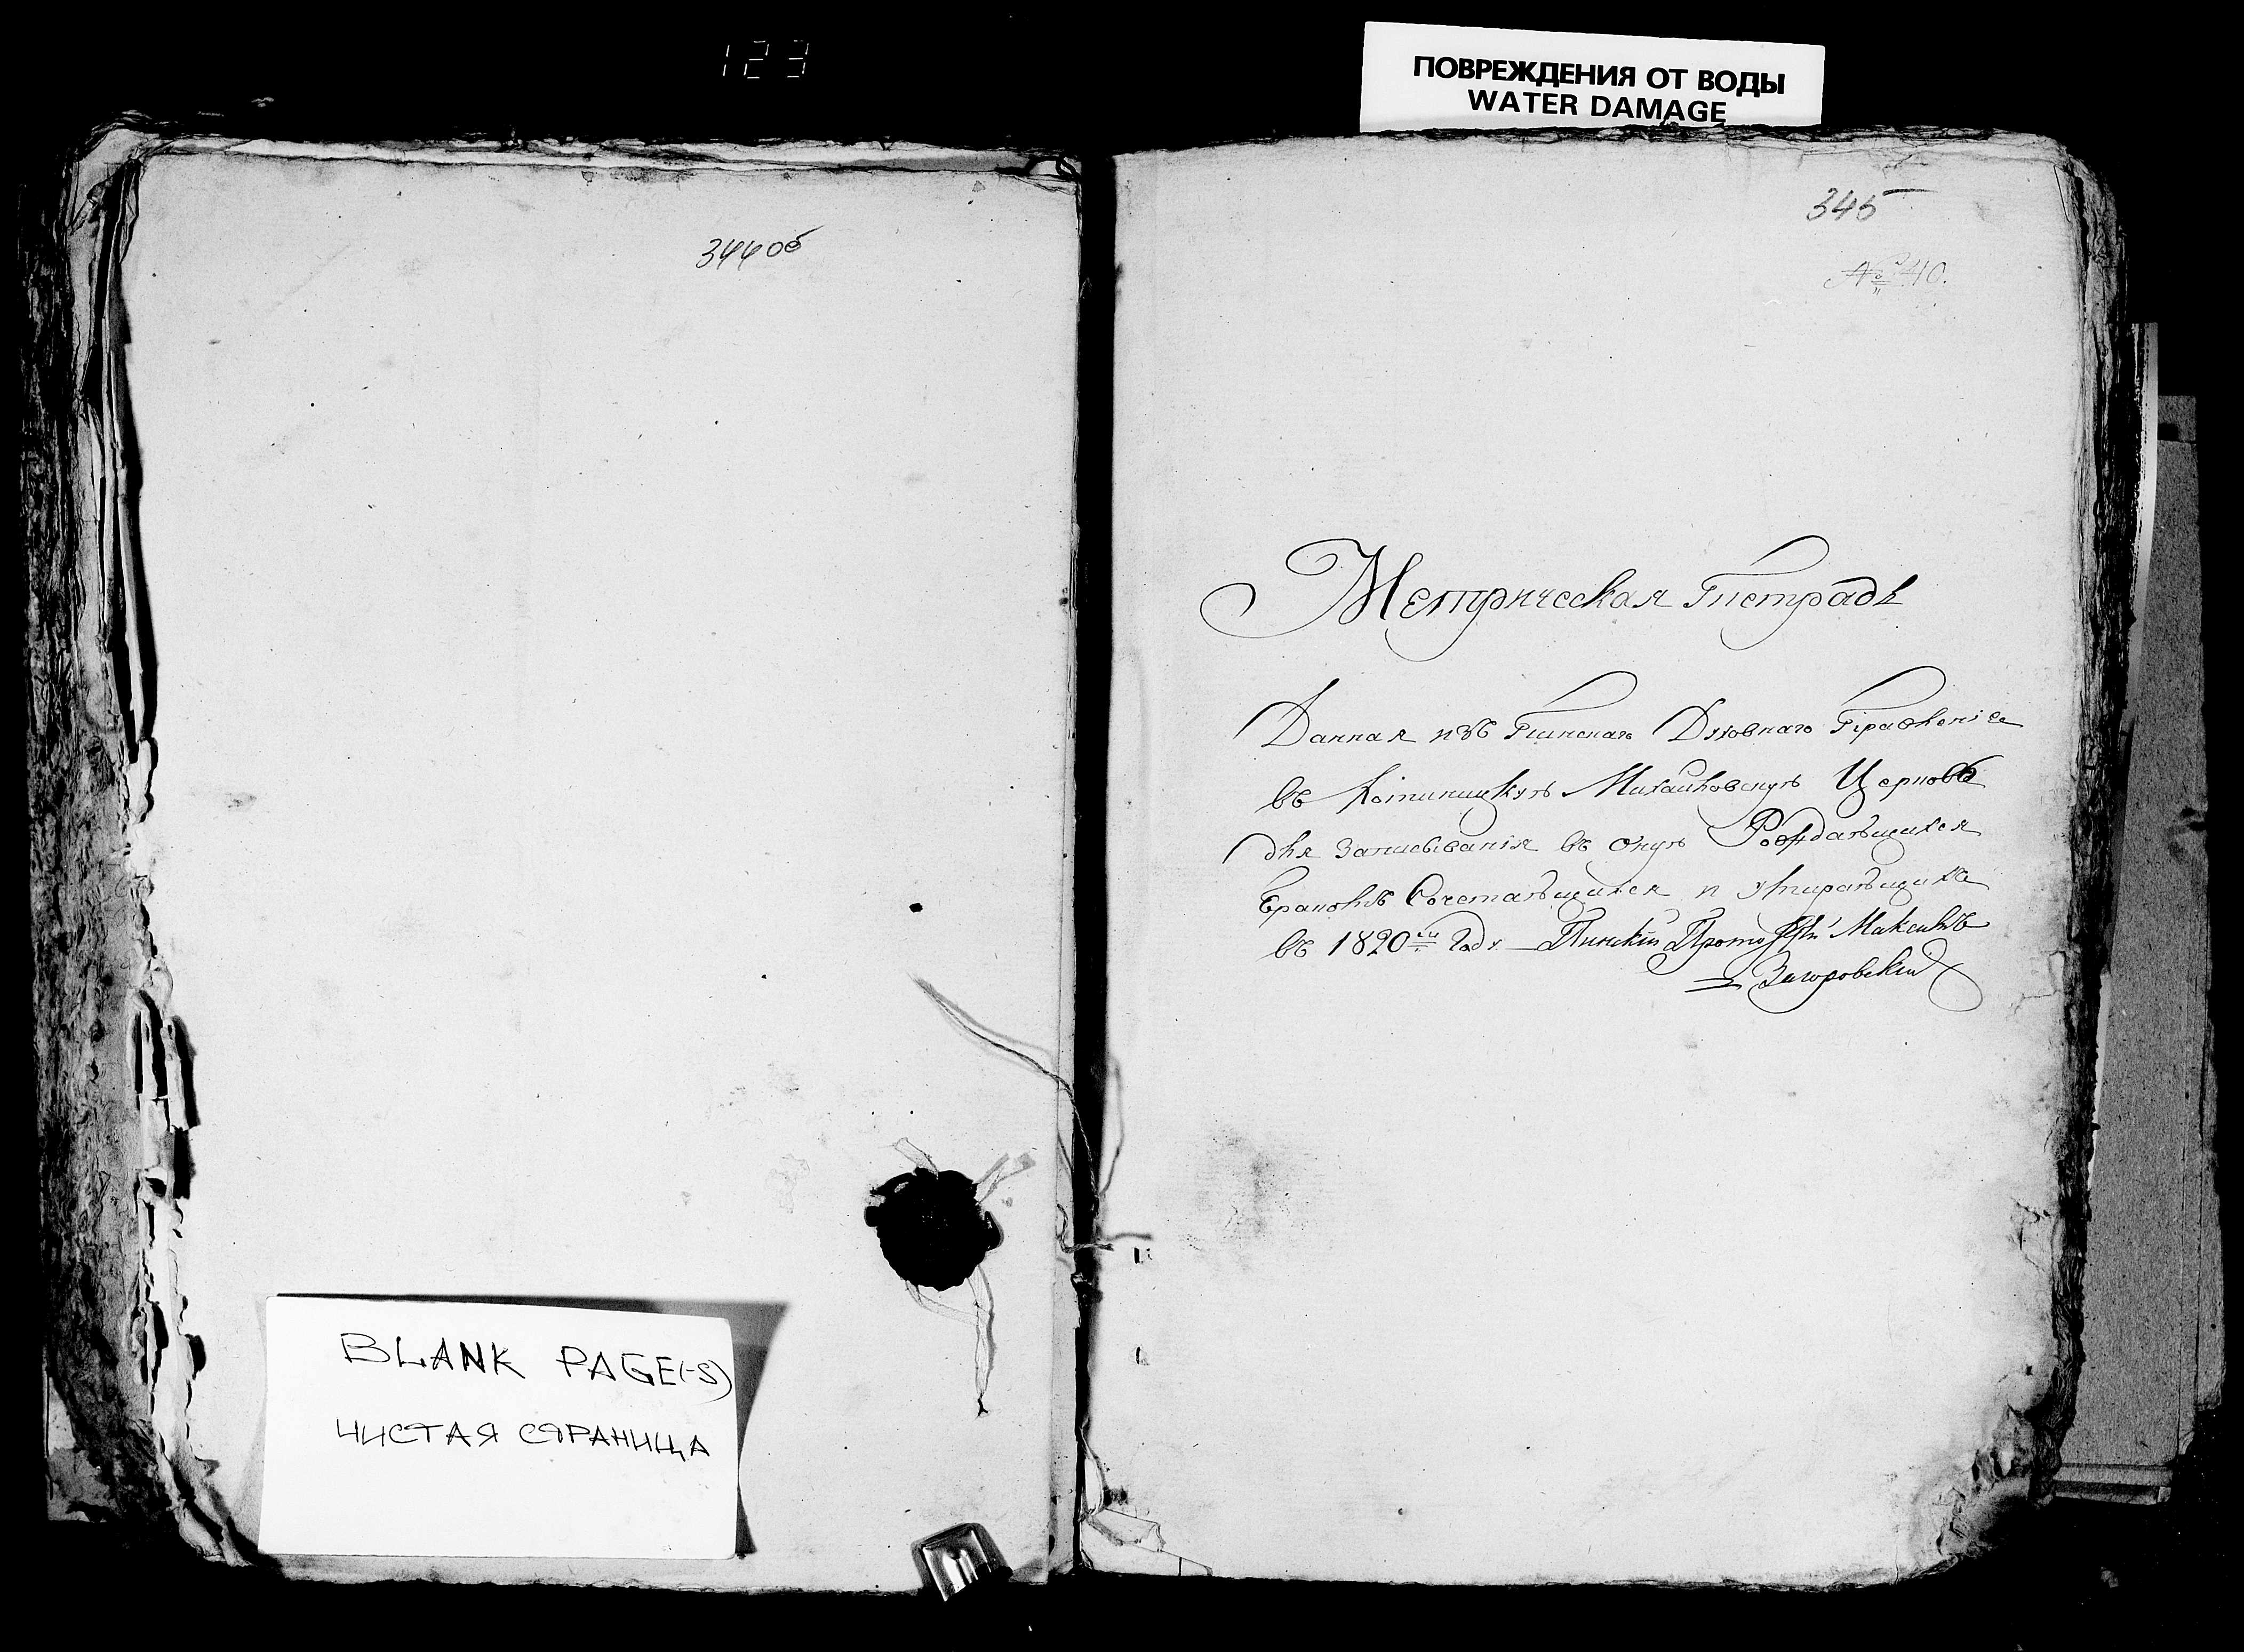 123
ПОВРЕЖДЕНИЯ ОТ ВОДЫ
WATER DAMAGE
344об
345
№ 40.
Метрическая Тетрадь
Данная изъ Пинскаго Духовнаго Правленія
въ Михайловскую Церковь
для Записыванія въ оную Рождающихся
Бракомъ Сочетающихся и умирающихъ
въ 1820мъ Году. Пинскій Протоіерей Максимъ
Загоровскій
BLANK PAGE(-S)
ЧИСТАЯ СТРАНИЦА